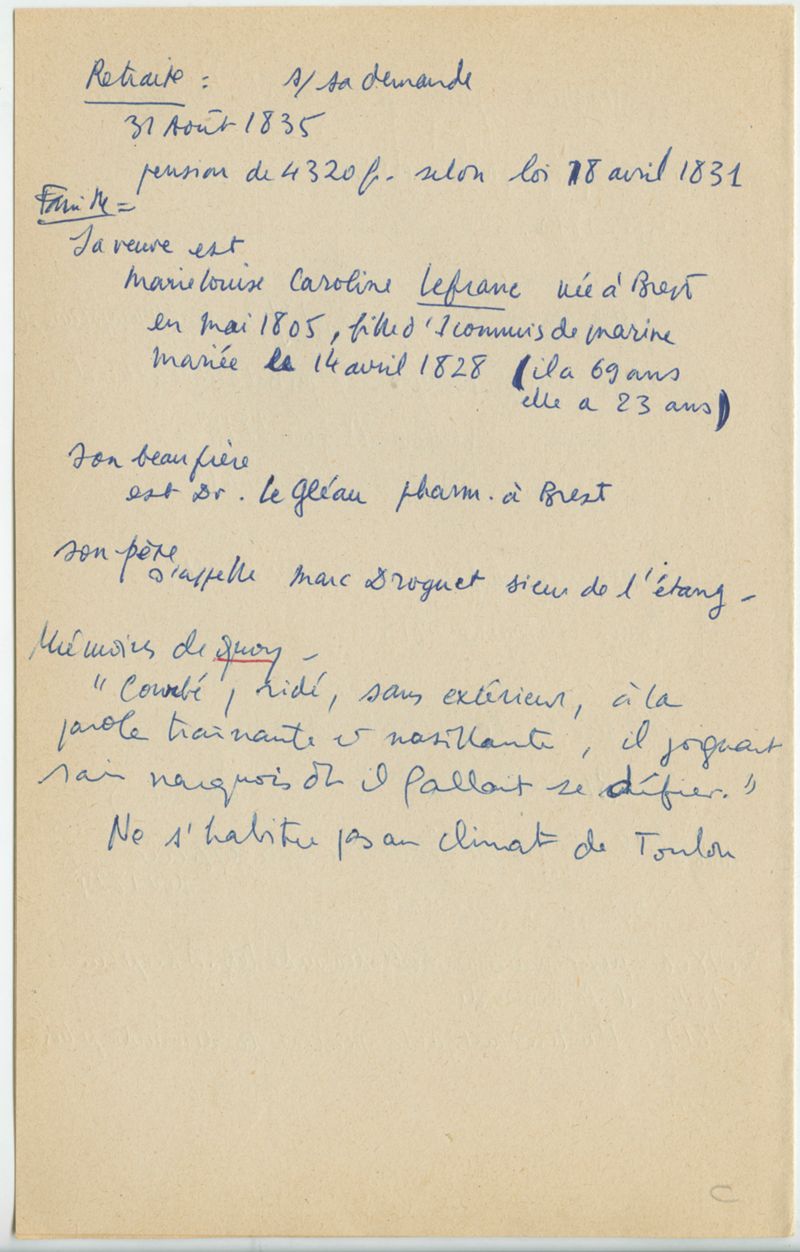 Retraite : s/ sa demande
31 Août 1835
pension de 4320 f. selon loi 18 avril 1831
Famille =
Sa veuve est
Marie Louise Caroline Lefranc née à Brest
en mai 1805, fille d'1 commis de marine
Mariée le 14 avril 1828 (il a 69 ans
elle a 23 ans)
son beau frère
est Dr. Le Gléau pharm. à Brest
son père
s'appelle Marc Droguet sieur de l'étang -
Mémoires de Quoy -
"Courbé, ridé, sans extérieur, à la
parole traînante et nasillante, il joignait
narquois dt il fallait se défier."
Ne s'habitue pas au climat de Toulon
C